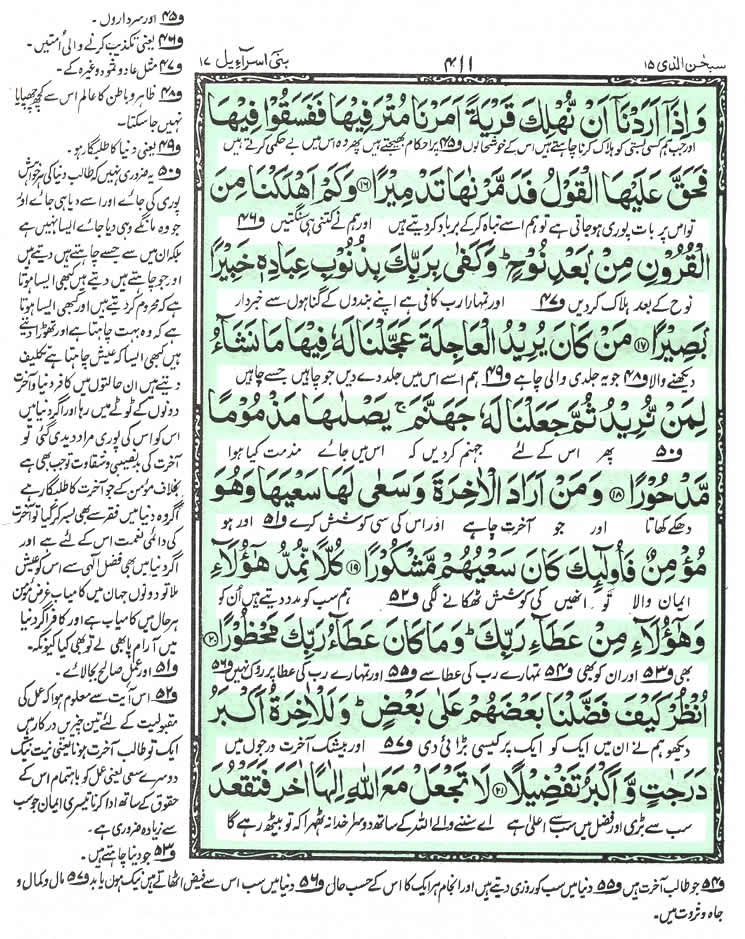 سبحٰن الذی ۱۵
۴۱۱
بنی اسرآءیل ۱۷
وَاِذَاۤ اَرَدْنَاۤ اَنْ نُّهْلِكَ قَرْیَةً اَمَرْنَا مُتْرَفِیْهَا فَفَسَقُوْا فِیْهَا
اور جب ہم کسی بستی کو ہلاک کرنا چاہتے ہیں اس کے خوشحالوں ف۴۵ پر احکام بھیجتے ہیں پھر وہ اس میں بے حکمی کرتے ہیں
فَحَقَّ عَلَیْهَا الْقَوْلُ فَدَمَّرْنٰهَا تَدْمِیْرًا ۱۶ وَكَمْ اَهْلَكْنَا مِنَ
تو اس پر بات پوری ہوجاتی ہے تو ہم اسے تباہ کرکے برباد کردیتے ہیں اور ہم نے کتنی ہی سنگتیں ف۴۶
الْقُرُوْنِ مِنْۢ بَعْدِ نُوْحٍؕ وَكَفٰى بِرَبِّكَ بِذُنُوْبِ عِبَادِهٖ خَبِیْرًۢا
نوح کے بعد ہلاک کردیں ف۴۷ اور تمہارا رب کافی ہے اپنے بندوں کے گناہوں سے خبردار
بَصِیْرًا ۱۷ مَنْ كَانَ یُرِیْدُ الْعَاجِلَةَ عَجَّلْنَا لَهٗ فِیْهَا مَا نَشَآءُ
دیکھنے والا ف۴۸ جو یہ جلدی والی چاہے ف۴۹ ہم اسے اس میں جلد دے دیں جو چاہیں جسے چاہیں
لِمَنْ نُّرِیْدُ ثُمَّ جَعَلْنَا لَهٗ جَهَنَّمَۚ یَصْلٰىهَا مَذْمُوْمًا
ف۵۰ پھر اس کے لئے جہنم کردیں کہ اس میں جائے مذمت کیا ہوا
مَّدْحُوْرًا ۱۸ وَمَنْ اَرَادَ الْاٰخِرَةَ وَسَعٰى لَهَا سَعْیَهَا وَهُوَ
دھکے کھاتا اور جو آخرت چاہے اور اس کی سی کوشش کرے ف۵۱ اور ہو
مُؤْمِنٌ فَاُولٰٓىِٕكَ كَانَ سَعْیُهُمْ مَّشْكُوْرًا ۱۹ كُلًّا نُّمِدُّ هٰۤؤُلَآءِ
ایمان والا تو انھیں کی کوشش ٹھکانے لگی ف۵۲ ہم سب کو مدد دیتے ہیں اُن کو
وَهٰۤؤُلَآءِ مِنْ عَطَآءِ رَبِّكَؕ وَمَا كَانَ عَطَآءُ رَبِّكَ مَحْظُوْرًا ۲۰
بھی ف۵۳ اور ان کو بھی ف۵۴ تمہارے رب کی عطا سے ف۵۵ اور تمہارے رب کی عطا پر روک نہیں ف۵۶
اُنْظُرْ كَیْفَ فَضَّلْنَا بَعْضَهُمْ عَلٰى بَعْضٍؕ وَلَلْاٰخِرَةُ اَكْبَرُ
دیکھو ہم نے ان میں ایک کو ایک پر کیسی بڑائی دی ف۵۷ اور بیشک آخرت درجوں میں
دَرَجٰتٍ وَّاَكْبَرُ تَفْضِیْلًا ۲۱ لَا تَجْعَلْ مَعَ اللّٰهِ اِلٰهًا اٰخَرَ فَتَقْعُدَ
سب سے بڑی اور فضل میں سب سے اعلیٰ ہے اے سننے والے اللہ کے ساتھ دوسرا خدا نہ ٹھہرا کہ تو بیٹھ رہے گا
ف۴۵ اور سرداروں۔
ف۴۶ یعنی تکذیب کرنے والی اُمتیں۔
ف۴۷ مثل عاد و ثمود وغیرہ کے۔
ف۴۸ ظاہر و باطن کا عالم اس سے کچھ چھپایا
نہیں جاسکتا۔
ف۴۹ یعنی دنیا کا طلبگار ہو۔
ف۵۰ یہ ضروری نہیں کہ طالب دنیا کی ہر خواہش
پوری کی جائے اور اسے دیا ہی جائے اور
جو وہ مانگے وہی دیا جائے ایسا نہیں ہے
بلکہ ان میں سے جسے چاہتے ہیں دیتے ہیں
اور جو چاہتے ہیں دیتے ہیں کبھی ایسا ہوتا
ہے کہ محروم کردیتے ہیں اور کبھی ایسا ہوتا
ہے کہ وہ بہت چاہتا ہے اور تھوڑا دیتے
ہیں کبھی ایسا کہ عیش چاہتا ہے تکلیف
دیتے ہیں ان حالتوں میں کافر دنیا و آخرت
دونوں کے ٹوٹے میں رہا اور اگر دنیا میں
اس کو اس کی پوری مراد دیدی گئی تو
آخرت کی بدنصیبی و شقاوت توجب بھی ہے
بخلاف مؤمن کے جو آخرت کا طلبگار ہے
اگر وہ دنیا میں فقر سے بھی بسر کرگیا تو آخرت
کی دائمی نعمت اس کے لئے ہے اور
اگر دنیا میں بھی فضل الٰہی سے اس کو عیش
ملا تو دونوں جہان میں کامیاب غرض مومن
ہر حال میں کامیاب ہے اور کافر اگر دنیا
میں آرام پا بھی لے تو بھی کیا کیونکہ۔
ف۵۱ اور عمل صالح بجالائے۔
ف۵۲ اس آیت سے معلوم ہوا کہ عمل کی
مقبولیت کے لئے تین چیزیں درکار ہیں
ایک تو طالب آخرت ہونا یعنی نیت نیک
دوسرے سعی یعنی عمل کو باہتمام اس کے
حقوق کے ساتھ ادا کرنا تیسری ایمان جو سب
سے زیادہ ضروری ہے۔
ف۵۳ جو دنیا چاہتے ہیں۔
ف۵۴ جو طالب آخرت ہیں ف۵۵ دنیا میں سب کو روزی دیتے ہیں اور انجام ہر ایک کا اس کے حسب حال ف۵۶ دنیا میں سب اس سے فیض اٹھاتے ہیں نیک ہوں یا بد ف۵۷ مال و کمال و
جاہ و ثروت میں۔